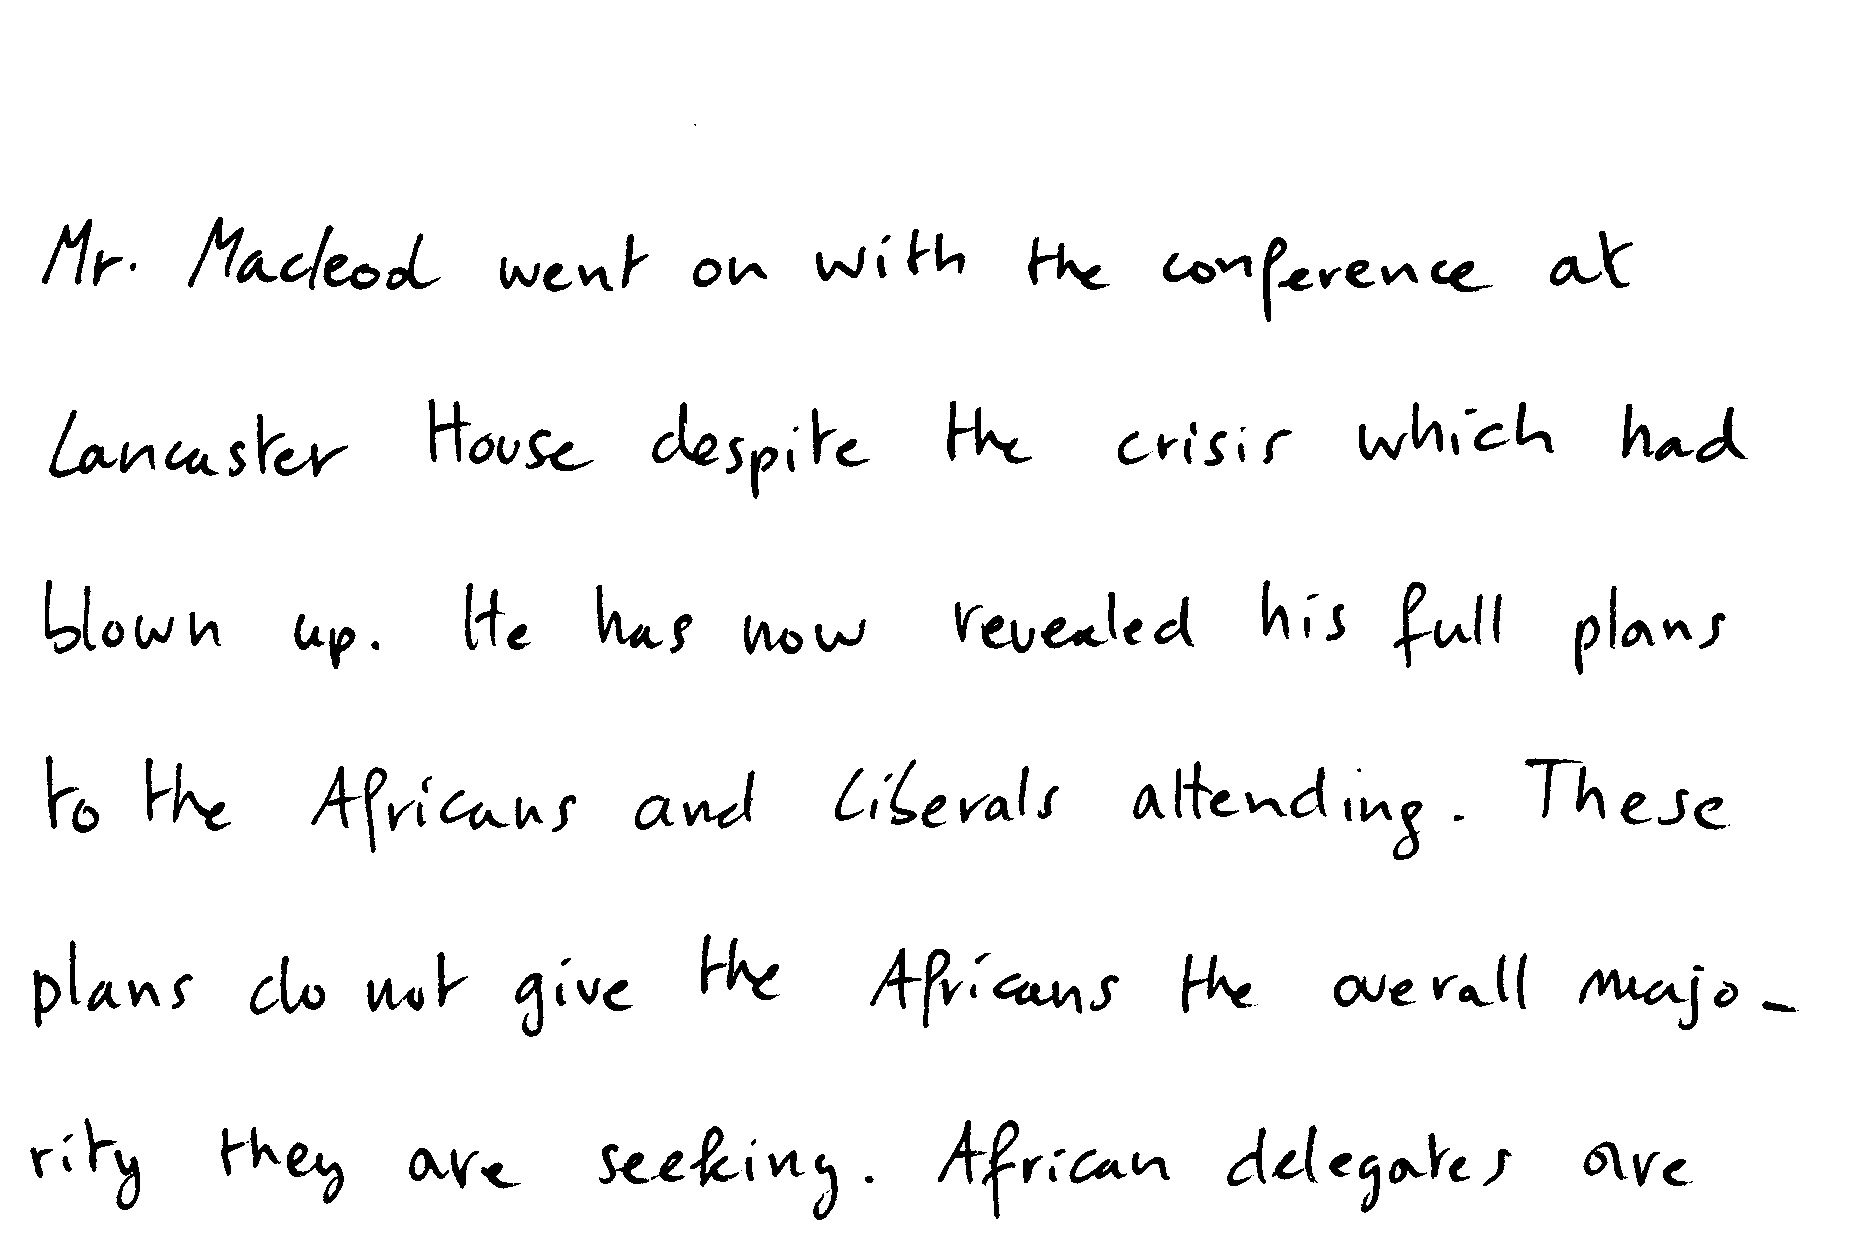 Mr. Macleod went on with the conference at
Lancaster House despite the crisis which had
blown up. He has now revealed his full plans
to the Africans and Liberals attending. These
plans do not give the Africans the overall majo-
rity they are seeking. African delegates are